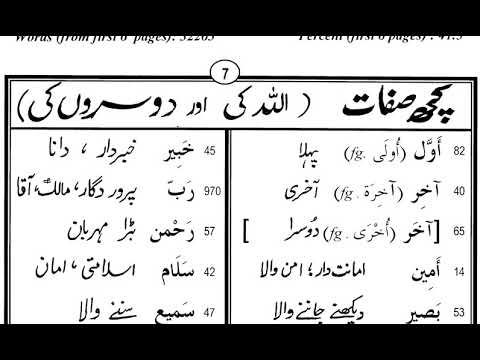 Words (from first 6 pages): 32263 Percent (first 6 pages) : 41.5
7
کچھ صفات (اللہ کی اور دوسروں کی)
82 أَوَّل (أُولَى .fg) پہلا 45 خَبِير خبردار، دانا
40 آخِر (آخِرَة .fg) آخری 970 رَبّ پرورد گار، مالک، آقا
65 [آخَر (أُخْرَى .fg) دُوسرا ] 57 رَحْمٰن بڑا مہربان
14 أَمِين امانت دار؛ امن والا 42 سَلَام اسلامتی، امان
53 بَصِير دیکھنے جاننے والا 47 سَمِيع سننے والا